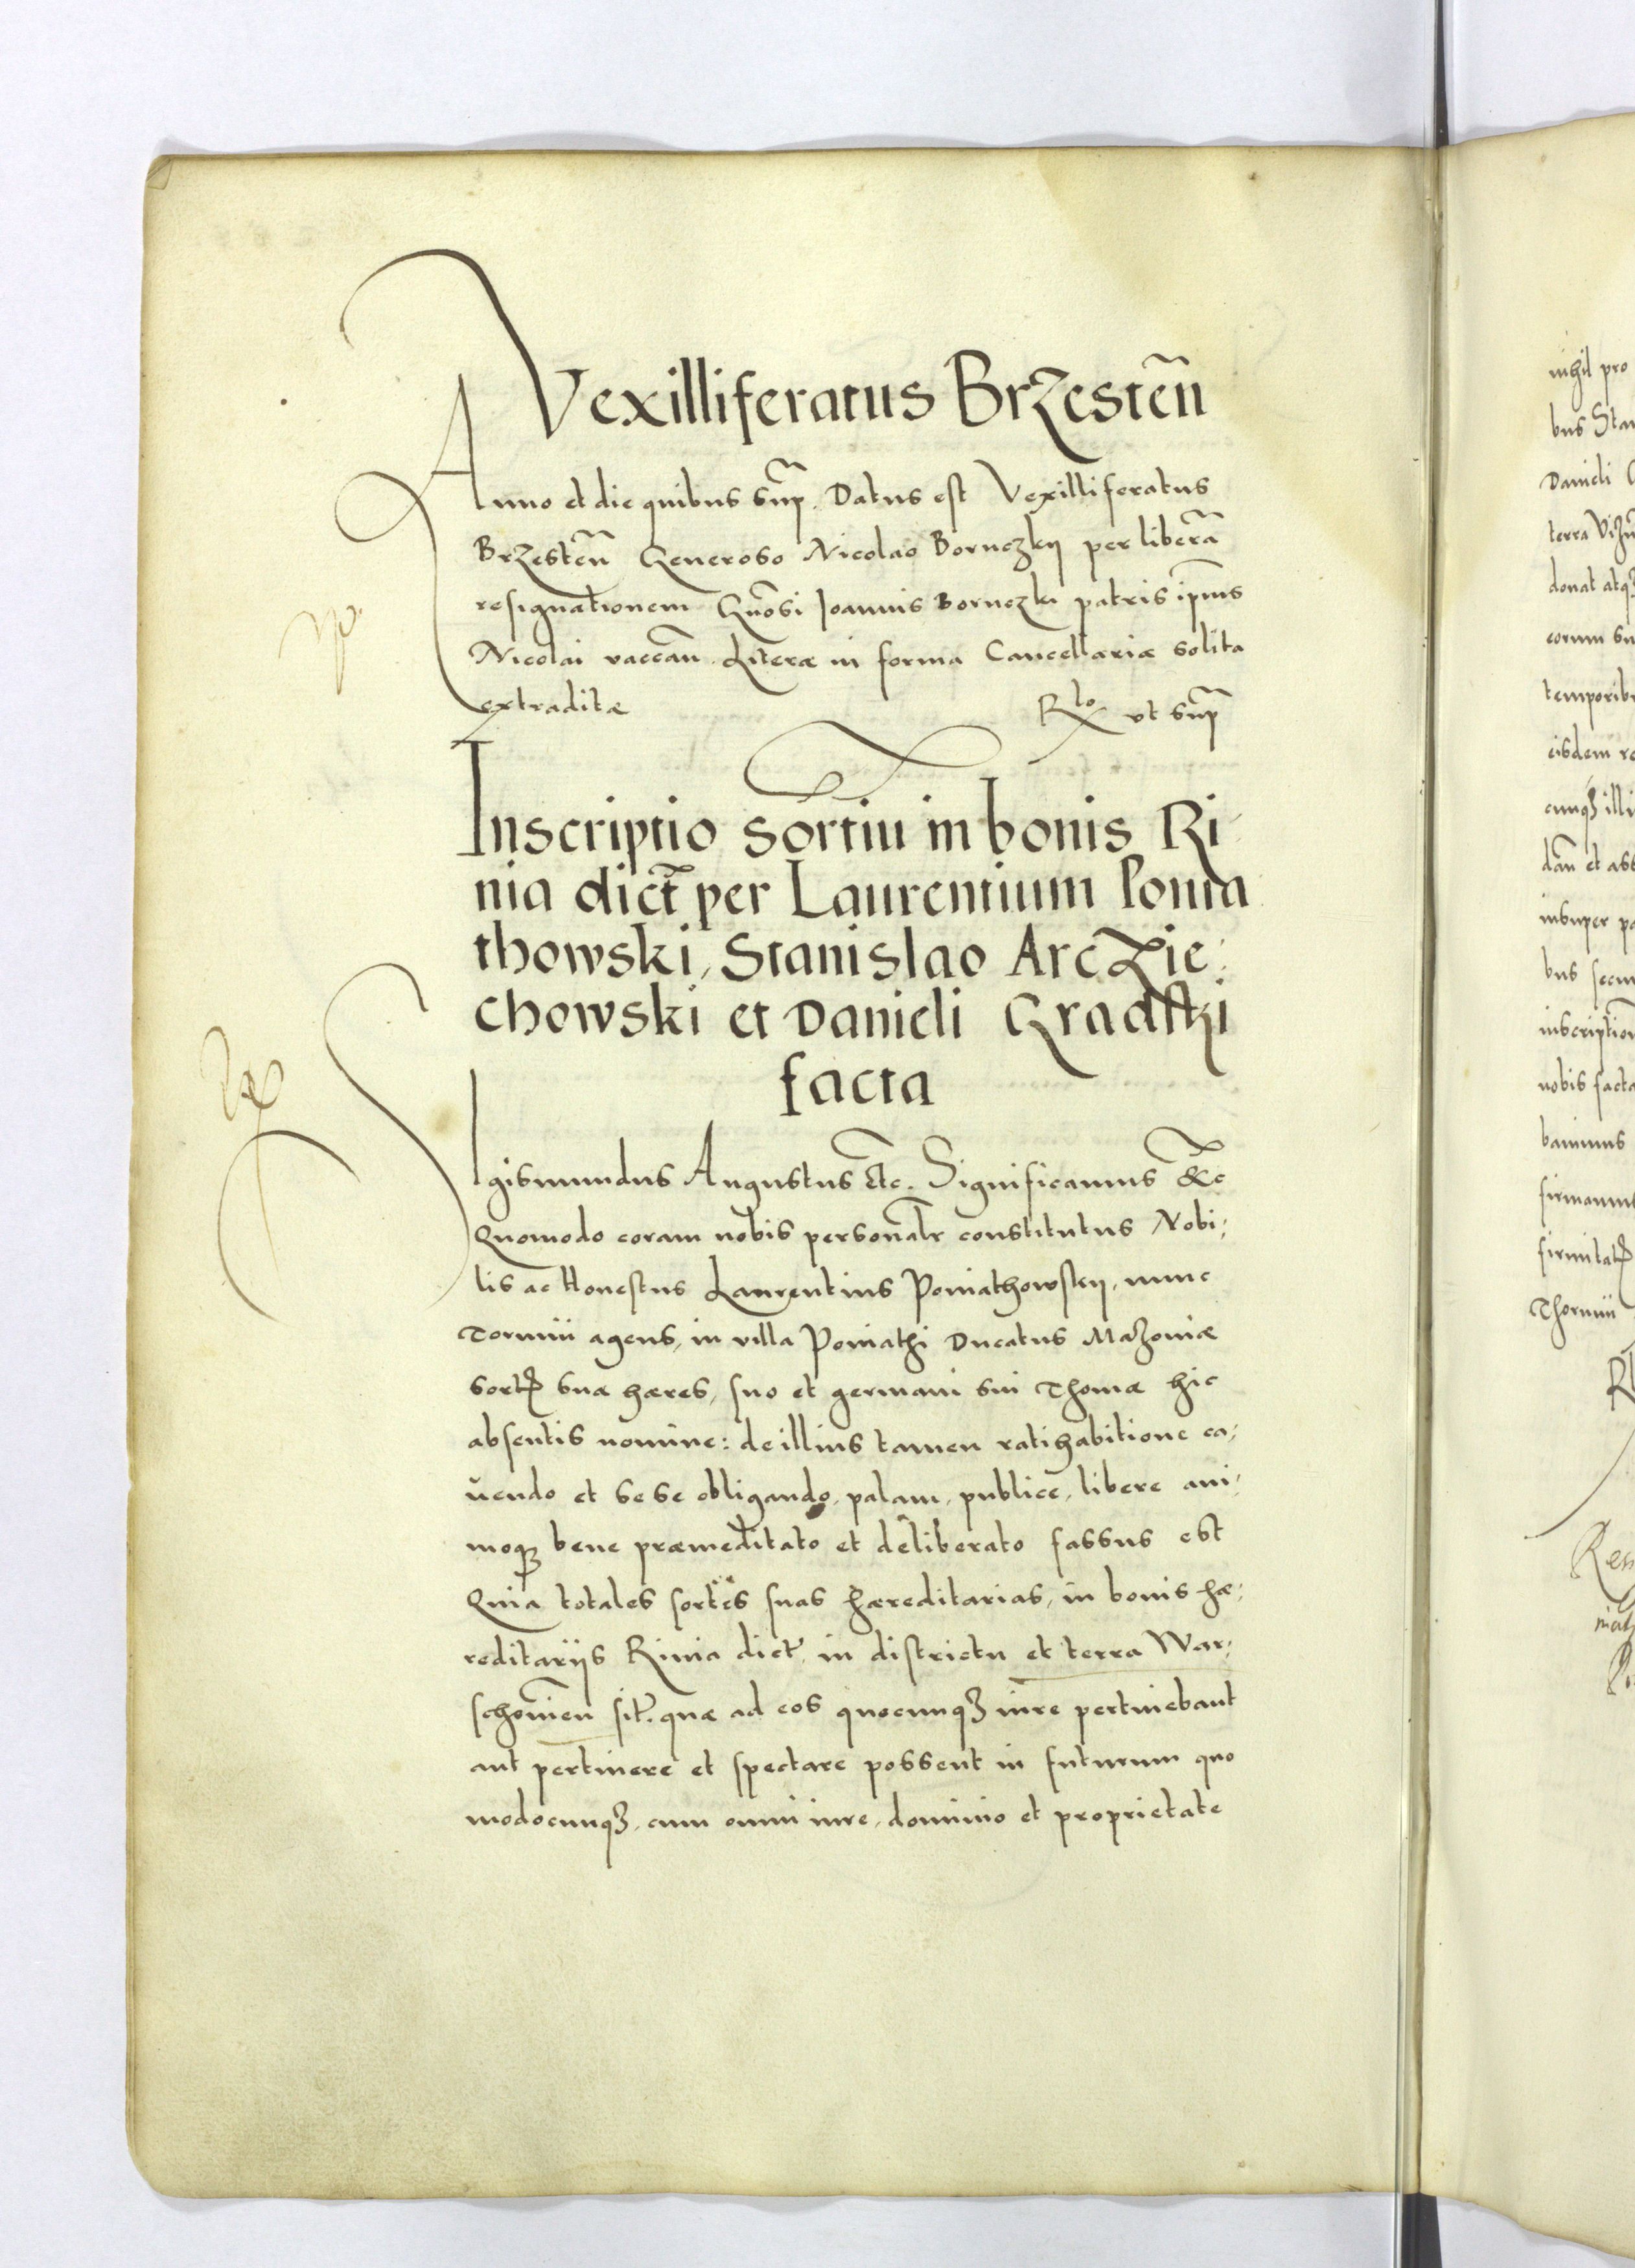 Vexilliferatus Brzesteñ
Anno et die quibus sup̃. Datus est Vexilliferatus
Brzesteñ Generoso Nicolao Bornczkij per liberã
resignationem Gñosi Joannis Bornczki patris ip̃ius
Nicolai vaccañ. Literæ in forma Cancellariæ solita
extraditæ Rlo vt sup̃
Inscriptio sortiũ in bonis Ri-
nia dict̃ per Laurentium Ponia
thowski, Stanislao Arczie-
chowski et Danieli Gradski
facta
Sigismundus Augustus etc. Significamus &c
Quomodo coram nobis personalr̃ constitutus Nobi-
lis ac Honestus Laurentius Poniathowskij, nunc
Torunij agens, in villa Poniathi Ducatus Mazoniæ
sort~ suæ hæres, suo et germani sui Thomæ hic
absentis nomine: de illius tamen ratihabitione ca-
uendo et se se obligando, palam, publice, libere ani-
moqȝ bene præmeditato et deliberato fassus est
Quia totales sortes suas hæreditarias, in bonis hæ-
reditarijs Rinia dict̃ in districtu et terra War-
schouieñ sit̃. quæ ad eos quocunqȝ iure pertinebant
aut pertinere et spectare possent in futurum quo
modocunqȝ, cum omni iure, dominio et proprietate
nihil pro
bus Sta
Danieli
terra
donat atqȝ
eorum su
temporib
eisdem re
cunqȝ illi
dañ et ass
insuper p
bus secu
inscription
nobis facta
bamus
firmamus
firmitat~
Thorunij